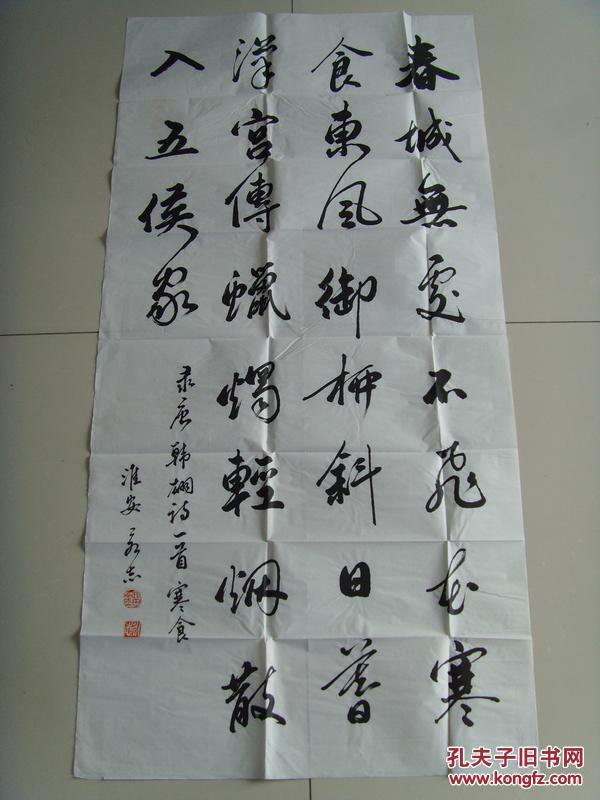 春城無處不飛花寒
食東風御柳斜日暮
漢宮傳蠟燭輕烟散
入五侯家
录唐韩翃诗一首寒食
淮安志
孔夫子旧书网
www.kongfz.com